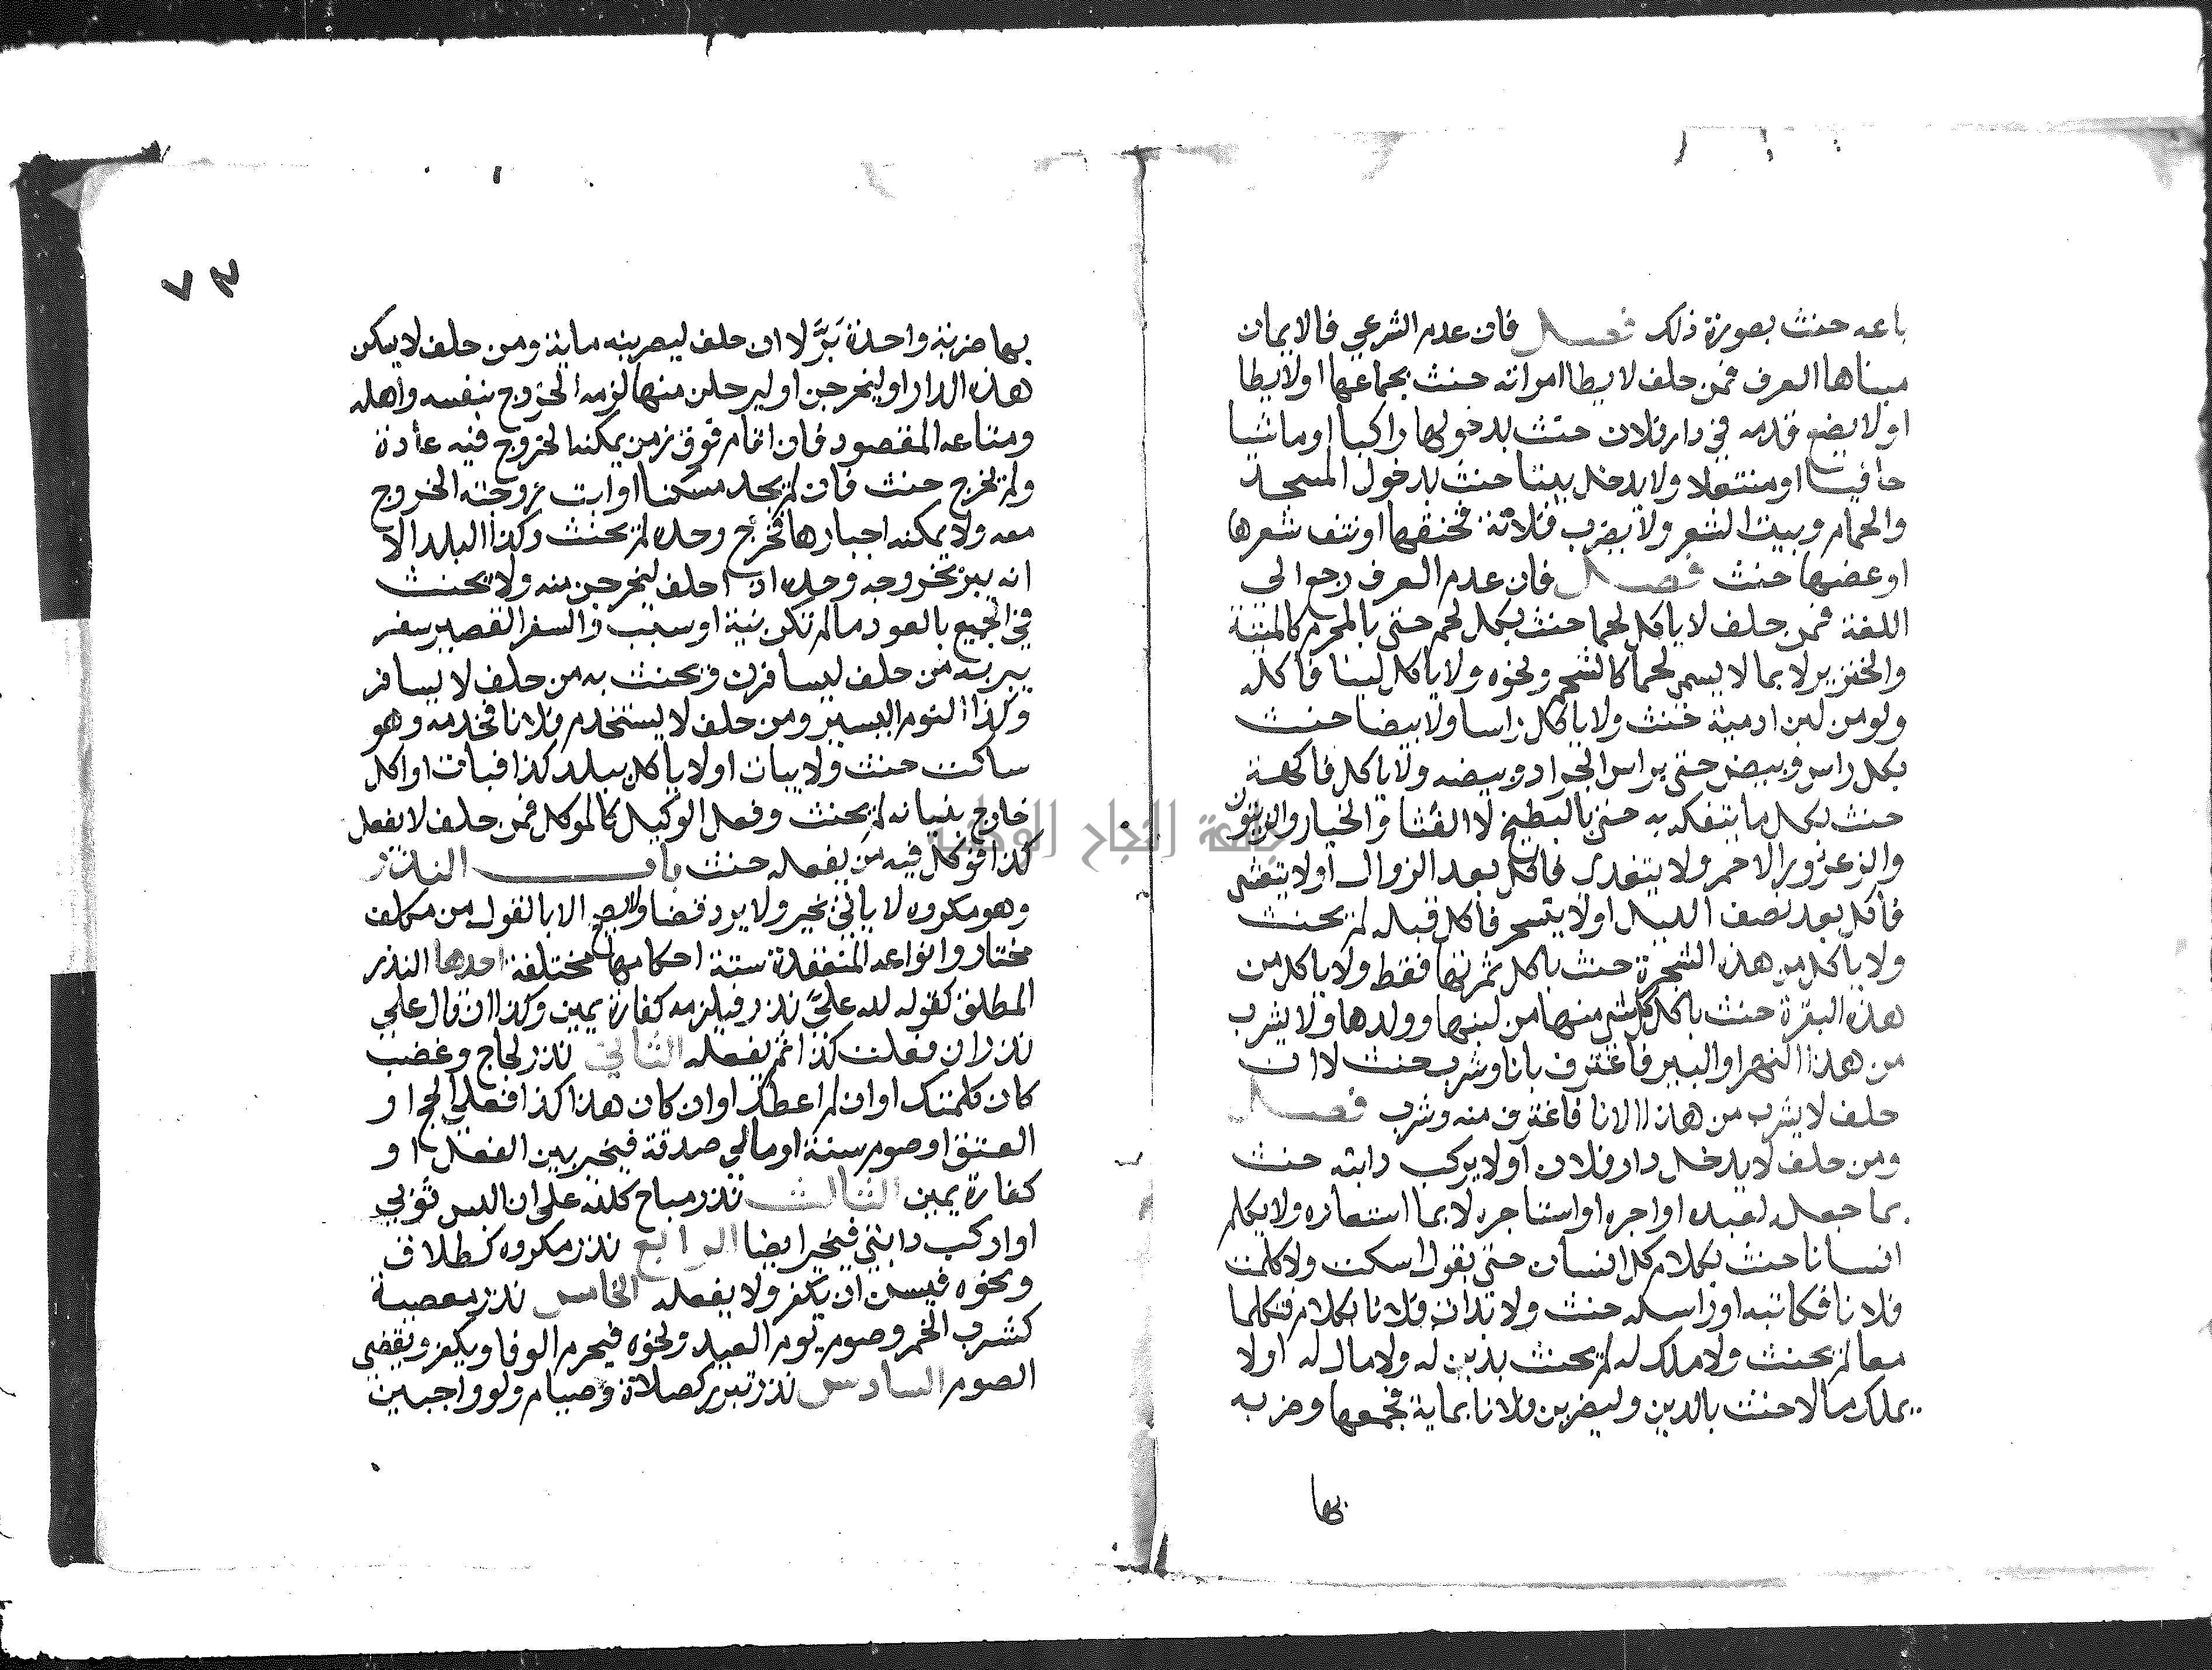 باعه حنث بصورة ذلك فصل فان عدم الشرعي فالايمان
مبناها العرف فمن حلف لا يطا امراته حنث بجماعها اولا يطا
اولا يضع قدمه في دار فلان حنث بدخولها راكبا او ماشيا
حافيا او منتعلا ولا يدخل بيتا حنث بدخول المسجد
والحمام وبيت الشعر ولا يضرب فلانة فخنقها او نتف شعرها
او عضها حنث فصل فان عدم العرف رجع الى
اللغة فمن حلف لا ياكل لحما حنث بكل لحم حتى بالمحرم كالميتة
والخنزير لا بما لا يسمى لحما كالشحم ونحوه ولا ياكل لبنا فاكله
ولو من لبن ادمية حنث ولا ياكل راسا ولا بيضا حنث
بكل راس وبيض حتى براس الجراد وبيضه ولا ياكل فاكهة
حنث بكل ما يتفكه به حتى بالبطيخ لا القثا والخيار والزيتون
والزعرور الاحمر ولا يتغدى فاكل بعد الزوال اولا يتعشى
فاكل بعد نصف الليل اولا يتسحر فاكل قبله لم يحنث
ولا ياكل من هذه الشجرة حنث باكل ثمرتها فقط ولا ياكل من
هذه البقرة حنث باكل كل شي منها من لبنها وولدها ولا يشرب
من هذا النهر او البير فاغترف بانا وشرب حنث لا ان
حلف لا يشرب من هذا الانا فاغترف منه وشرب فصل
ومن حلف لا يدخل دار فلان اولا يركب دابته حنث
بما جعله لعبده او اجره او استاجره لا بما استعاره ولا يكلم
انسانا حنث بكلام كل انسان حتى بقول اسكت ولا كلمت
فلانا فكاتبه او راسله حنث ولا بدات فلانا بكلام فتكلما
معا لم يحنث ولا ملك له لم يحنث بدين له ولا مال له اولا
يملك مالا حنث بالدين وليضربن فلانا بماية فجمعها وضربه
بها
٧٣
بها ضربة واحدة بَرَّ لا ان حلف ليضربنه ماية ومن حلف لا يسكن
هذه الدار او ليخرجن او ليرحلن منها لزمه الخروج بنفسه واهله
ومتاعه المقصود فان اقام فوق زمن يمكنه الخروج فيه عادة
ولم يخرج حنث فان لم يجد مسكنا او ابت زوجته الخروج
معه ولا يمكنه اجبارها فخرج وحده لم يحنث وكذا البلد الا
انه يبر بخروجه وحده اذا حلف ليخرجن منه ولا يحنث
في الجميع بالعود ما لم تكن نية او سبب والسفر القصير سفر
يبر به من حلف ليسافرن ويحنث به من حلف لا يسافر
وكذا النوم اليسير ومن حلف لا يستخدم فلانا فخدمه وهو
ساكت حنث ولا يبات اولا ياكل ببلد كذا فبات او اكل
خارج بنيانه لم يحنث وفعل الوكيل كالموكل فمن حلف لا يفعل
كذا فوكل فيه من يفعله حنث باب النذر
وهو مكروه لا ياتي بخير ولا يرد قضا ولا يصح الا بالقول من مكلف
مختار وانواعه المنعقدة ستة احكامها مختلفة احدها النذر
المطلق كقوله لله عليَّ نذر فيلزمه كفارة يمين وكذا ان قال علي
نذر ان فعلت كذا ثم يفعله الثاني نذر لجاج وغضب
كان كلمتك او ان لم اعطك او ان كان هذا كذا فعلي الحج او
العتق او صوم سنة او مالي صدقة فيخير بين الفعل او
كفارة يمين الثالث نذر مباح كلله علي ان البس ثوبي
او اركب دابتي فيخير ايضا الرابع نذر مكروه كطلاق
ونحوه فيسن ان يكفر ولا يفعله الخامس نذر معصية
كشرب الخمر وصوم يوم العيد ونحوه فيحرم الوفا ويكفر ويقضي
الصوم السادس نذر تبرر كصلاة وصيام ولو واجبين
جامعة النجاح الوطنية